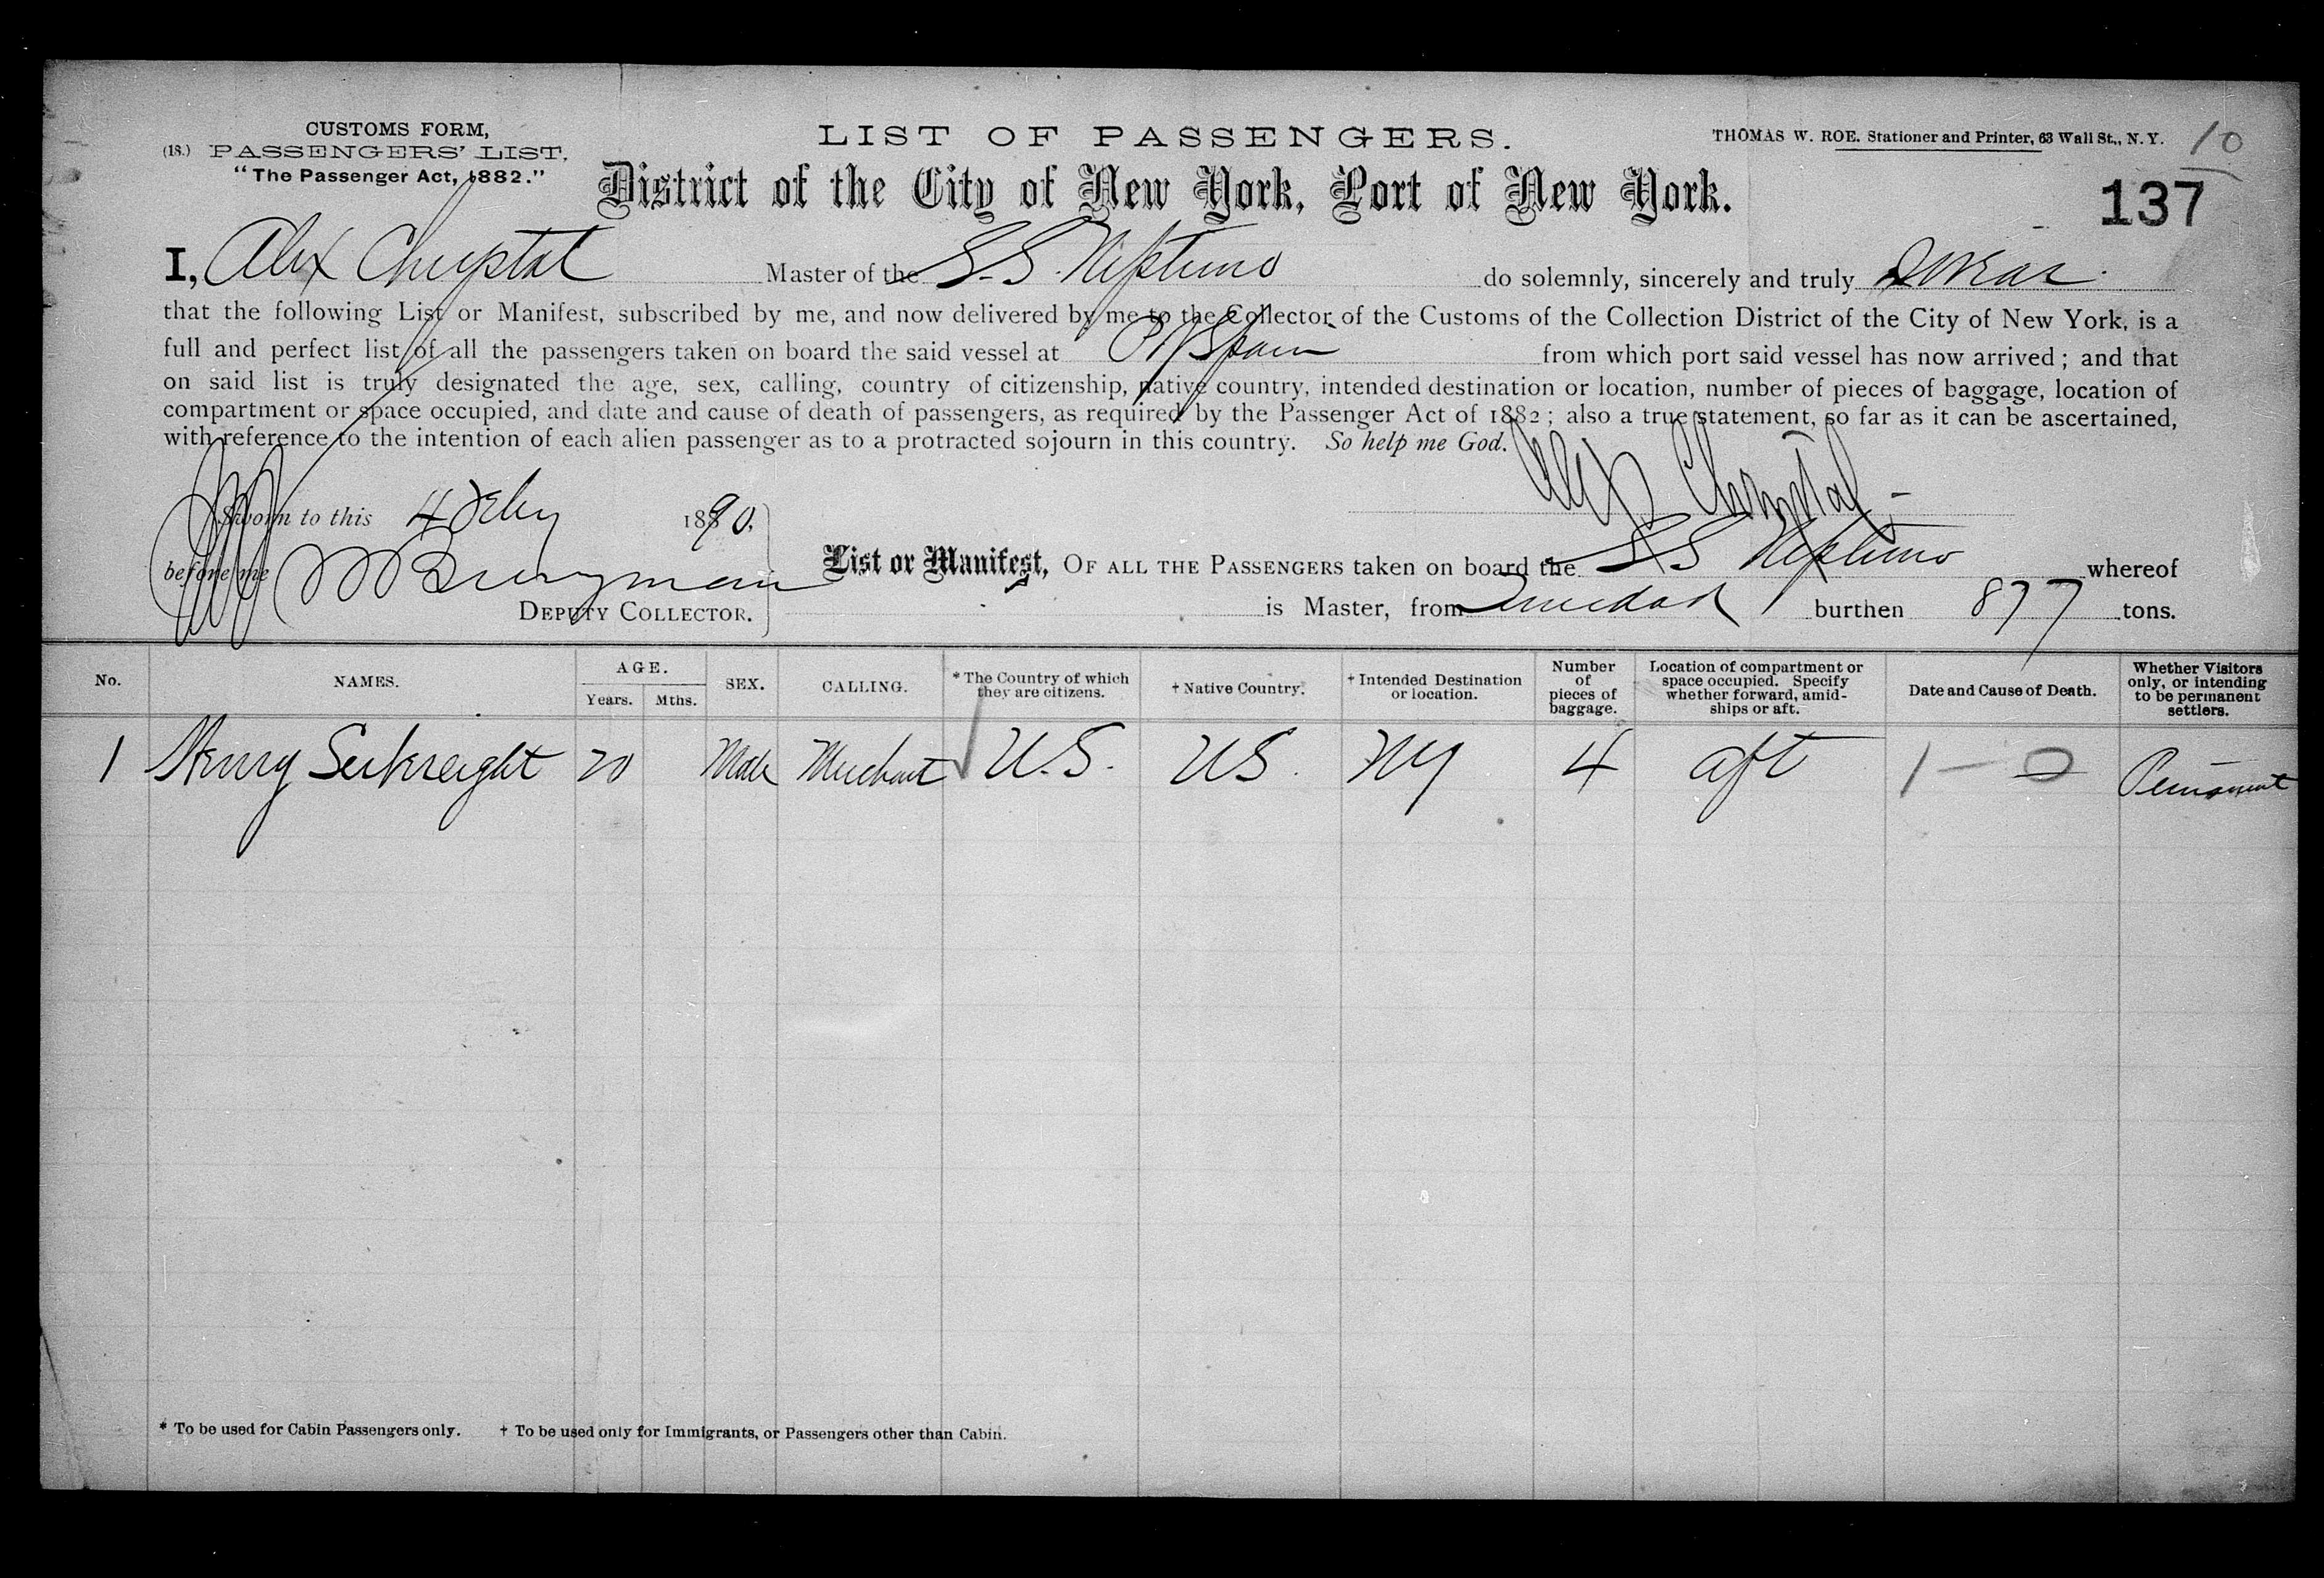 CUSTOMS FORM,
(18.) PASSENGERS' LIST,
"The Passenger Act, 1882."
LIST OF PASSENGERS.
THOMAS W. ROE. Stationer and Printer, 63 Wall St., N. Y.
10
137
District of the City of New York, Port of New York.
I, Alex Chrystal Master of the S.S. Neptuno do solemnly, sincerely and truly swear
that the following List or Manifest, subscribed by me, and now delivered by me to the Collector of the Customs of the Collection District of the City of New York, is a
full and perfect list of all the passengers taken on board the said vessel at P Spain from which port said vessel has now arrived; and that
on said list is truly designated the age, sex, calling, country of citizenship, native country, intended destination or location, number of pieces of baggage, location of
compartment or space occupied, and date and cause of death of passengers, as required by the Passenger Act of 1882; also a true statement, so far as it can be ascertained,
with reference to the intention of each alien passenger as to a protracted sojourn in this country. So help me God.
Alex Chrystal
Sworn to this 4 Feby 1890.
before me
DEPUTY COLLECTOR.
List or Manifest, OF ALL THE PASSENGERS taken on board the SS Neptuno whereof
is Master, from Trinidad burthen 877 tons.
No. NAMES. AGE. Years. Mths. SEX. CALLING. * The Country of which they are citizens. † Native Country. † Intended Destination or location. Number of pieces of baggage. Location of compartment or space occupied. Specify whether forward, amidships or aft. Date and Cause of Death. Whether Visitors only, or intending to be permanent settlers.
1 Henry 20 Male Merchant U.S. US. NY 4 aft 1 - 0 Permanent
* To be used for Cabin Passengers only. † To be used only for Immigrants, or Passengers other than Cabin.